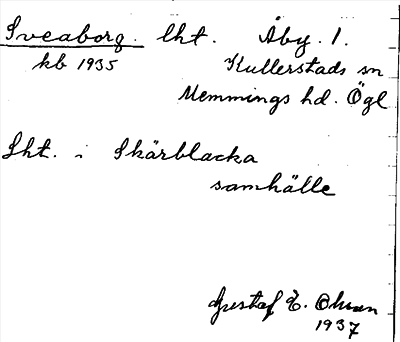 Sveaborg. lht. Åby. 1.
kb 1935 Kullerstads sn
Memmings hd. Ögl
Lht. i Skärblacka
samhälle
Gustaf E. Ohson
1937